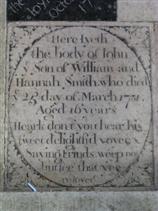 Here lyeth
the body of John
Son of William and
Hannah Smith who died
25 day of March 17
Aged 16 years
Heark don't you hear his
sweet delightfd voye
Saying Frinds weep no
but see that yee
reioyce